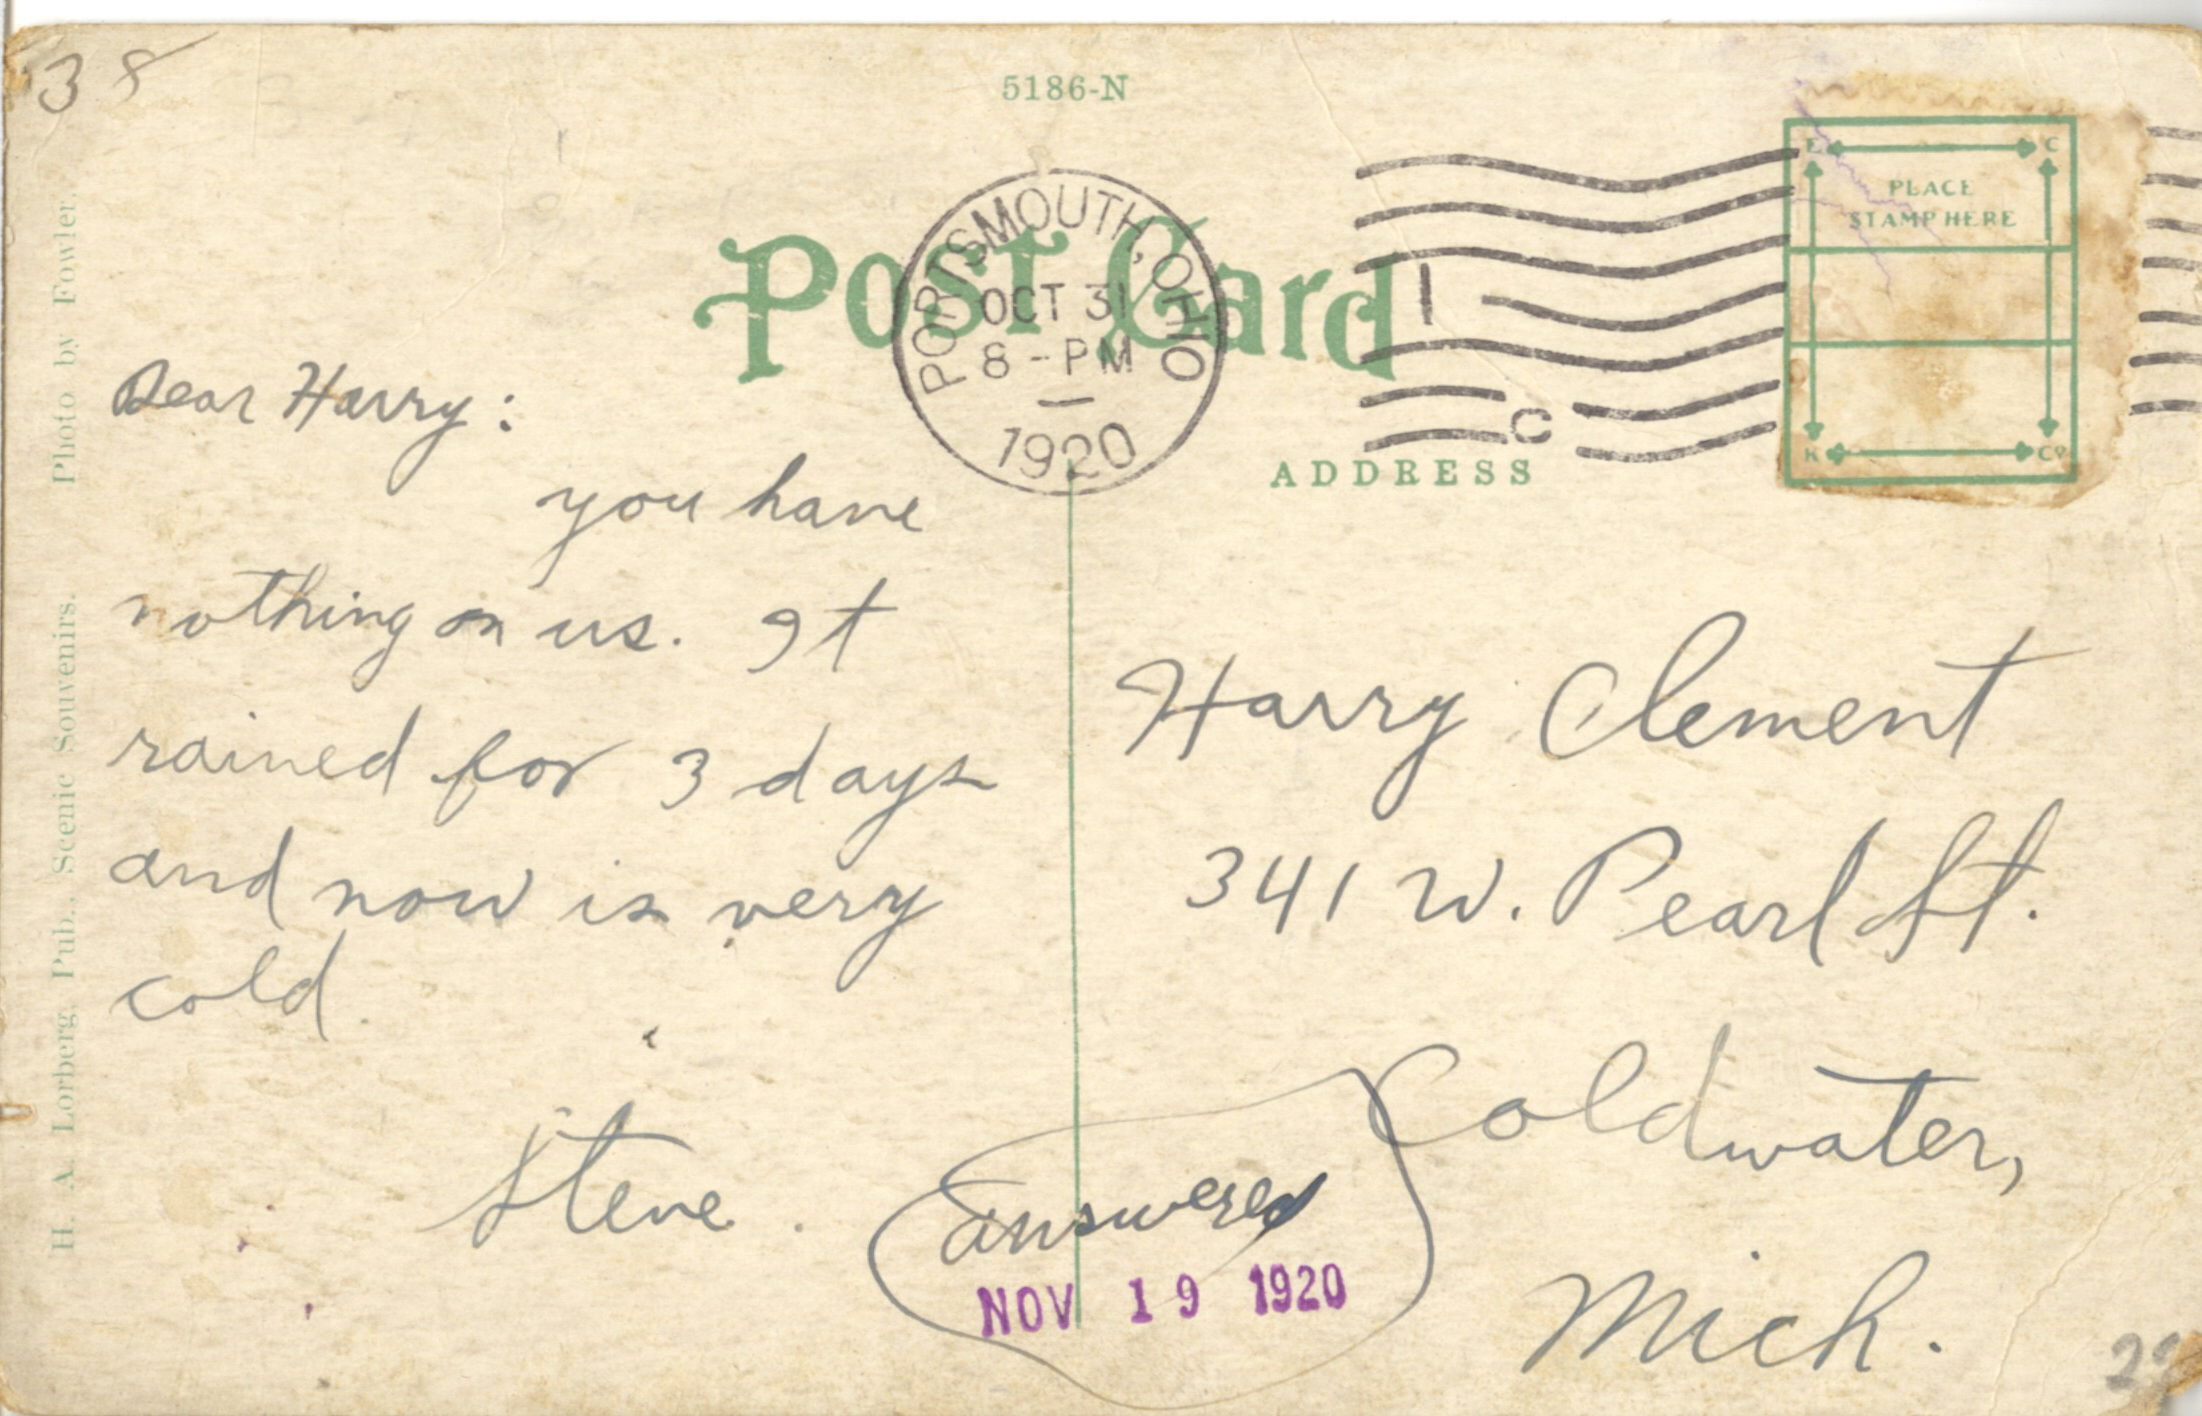 38
5186-N
Post Card
PORTSMOUTH, OHIO
OCT 31
8-PM
1920
PLACE
STAMP HERE
ADDRESS
H. A. Lorberg, Pub., Scenic Souvenirs. Photo by Fowler.
Dear Harry:
you have
nothing on us. It
rained for 3 days
and now is very
cold.
Steve.
Harry Clement
341 W. Pearl St.
Coldwater,
Mich.
answered
NOV 19 1920